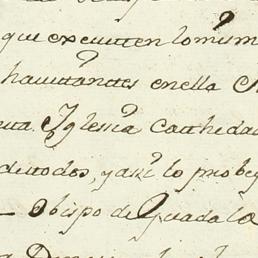 que executen lo mism
havitantes en ella
Iglesia Cathedra
de todos, y asi lo probey
Obispo de Guadala